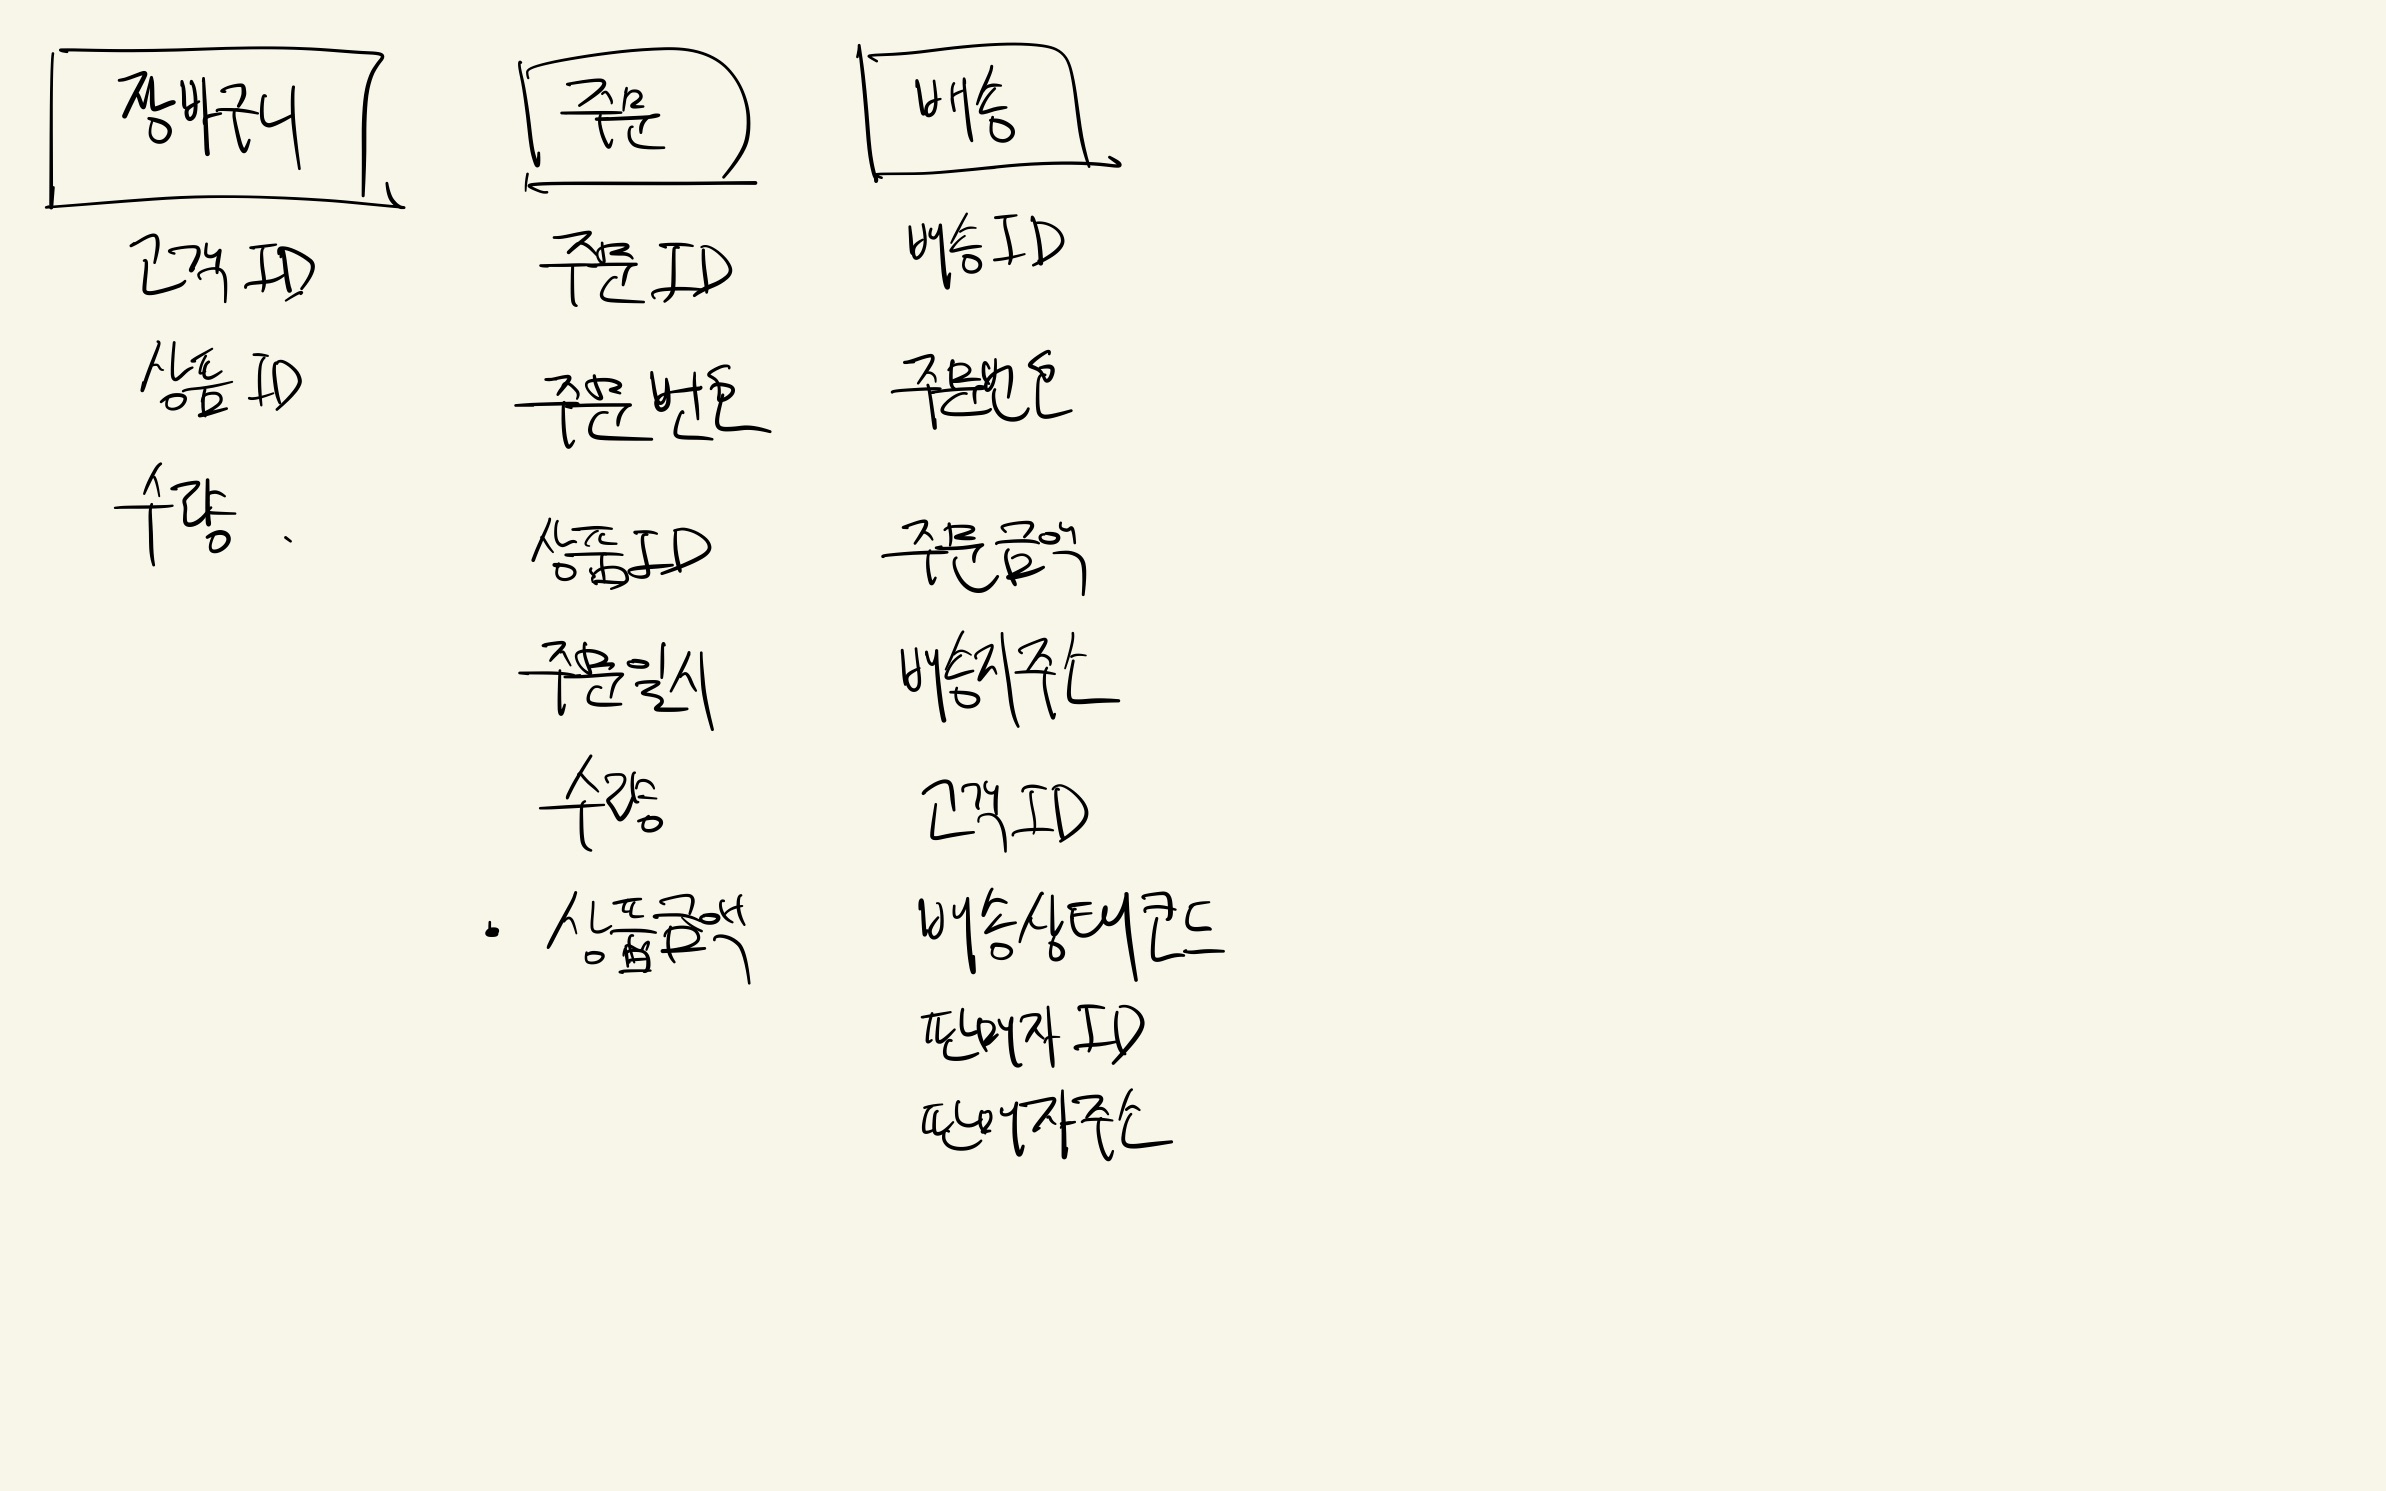 장바구니
고객 ID
상품 ID
수량
주문
주문 ID
주문 번호
상품 ID
주문일시
수량
상품금액
배송
배송 ID
주문번호
주문금액
배송지주소
고객 ID
배송상태코드
판매자 ID
판매자주소